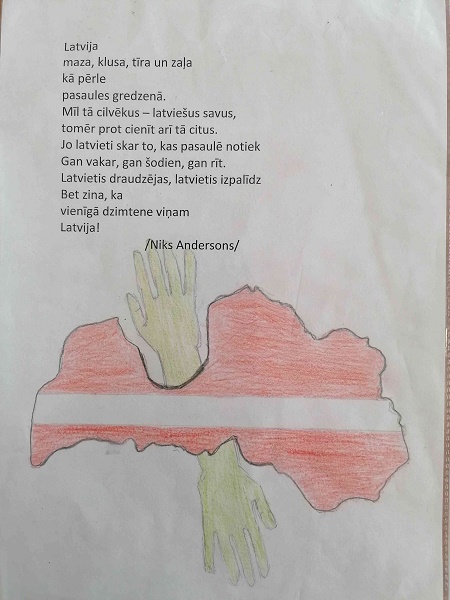 Latvija
maza, klusa, tīra un zaļa
kā pērle
pasaules gredzenā.
Mīl tā cilvēkus – latviešus savus,
tomēr prot cienīt arī tā citus.
Jo latvieti skar to, kas pasaulē notiek
Gan vakar, gan šodien, gan rīt.
Latvietis draudzējas, latvietis izpalīdz
Bet zina, ka
vienīgā dzimtene viņam
Latvija!
/Niks Andersons/